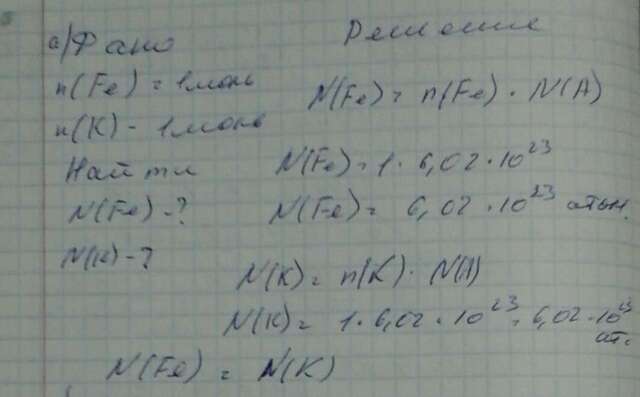 а) Дано
Решение
n(Fe) = 1 моль
n(K) - 1 моль
Найти
N(Fe) - ?
N(K) - ?
N(Fe) = n(Fe) · N(A)
N(Fe) = 1 · 6,02 · 10²³
N(Fe) = 6,02 · 10²³ атом.
N(K) = n(K) · N(A)
N(K) = 1 · 6,02 · 10²³ = 6,02 · 10²³
ат.
N(Fe) = N(K)